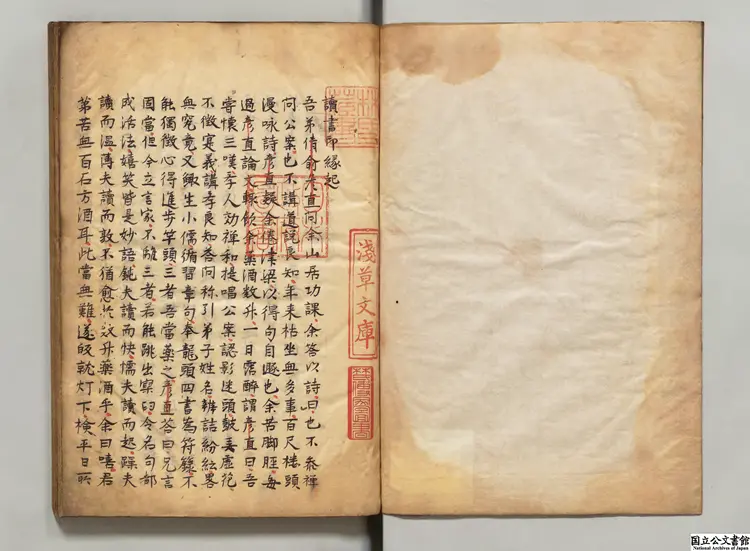 讀書印緣起
吾弟倩俞彥直問余山居功課余答以詩曰也不參禪
問公案也不講道說良知年來枯坐無多事百尺樓頭
漫咏詩彥直疑余倦津梁以得句自遯也余苦脚脛每
過彥直論文輒飲余藥酒數升一日露醉謂彥直曰吾
嘗懷三嘆季人効禪和提唱公案認影迷頭皷弄虛花
不徵寔義講季良知答問称引弟子姓名辨詰紛紜畧
無究竟又鯫生小儒循習章句奉龍頭四書為符籙不
能獨徵心得進步竿頭三者吾當藥之彥直答曰兄言
固當但今立言家不離三者若能跳出窠臼令名句都
成活法嬉笑皆是妙語鈍夫讀而快懦夫讀而起躁夫
讀而溫薄夫讀而敦不猶愈於數升藥酒乎余曰嘻君
第苦無百石方酒耳此當無難遂皈就灯下檢平日所
淺草文庫
国立公文書館
National Archives of Japan